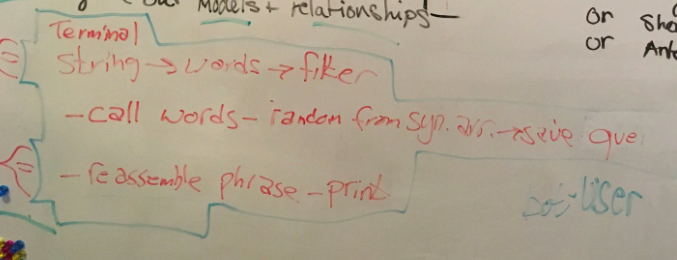 Models + relationships—
or
or
Terminal
String → words → filter
- call words - random from syn. arr. → save que
- reassemble phrase - print
User